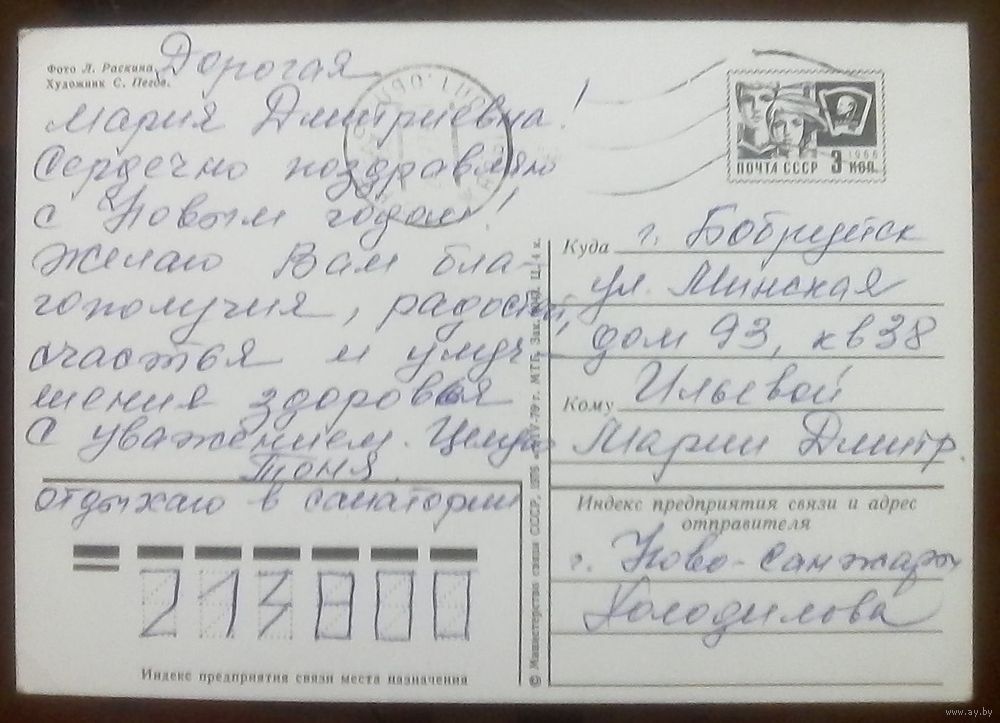 Фото Л. Раскина
Художник С. Пегов.
Дорогая
Мария Дмитриевна!
Сердечно поздравляю
с Новым годом!
Желаю Вам бла-
гополучия, радостей,
счастья и улуч-
шения здоровья
С уважением. Целую
Тоня.
отдыхаю в санатории
213800
Индекс предприятия связи места назначения
© Министерство связи СССР, 1978
МТБ. Зак. Ц. 4 к.
ПОЧТА СССР 3 коп.
1966
Куда г. Бобруйск
ул. Минская
дом 93, кв 38
Кому Ильевой
Марии Дмитр.
Индекс предприятия связи и адрес
отправителя
г. Ново-Санжары
Холодилова
www.ay.by